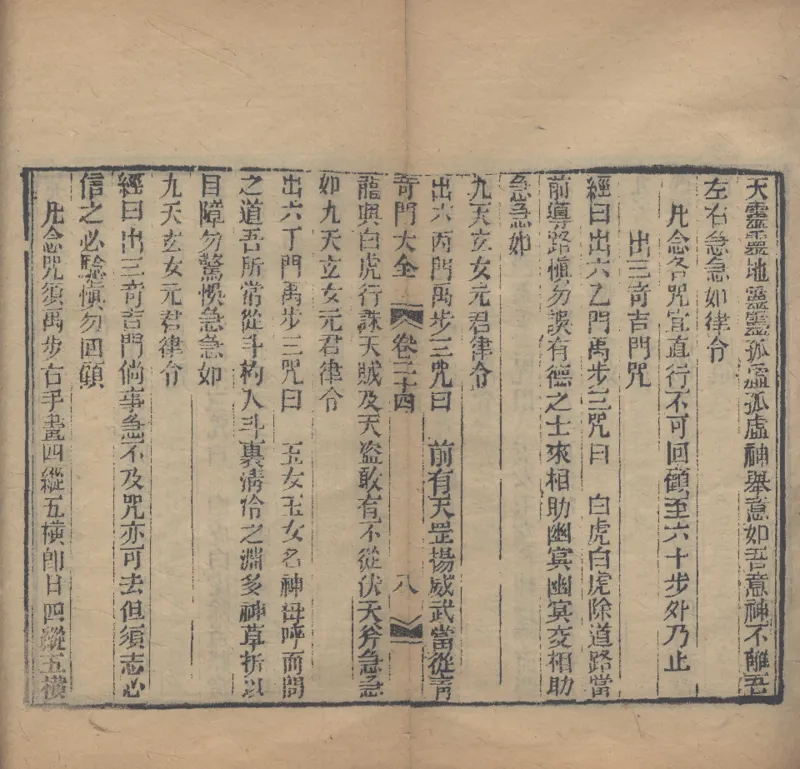 天靈靈地靈靈孤虛孤虛神舉意如吾意神不離吾
左右急急如律令
凡念各咒宜直行不可回顧至六十步外乃止
出三奇吉門咒
經曰出六乙門禹步三咒曰 白虎白虎除道路當
前導路愼勿誤有德之士來相助幽冥幽冥交相助
急急如
九天玄女元君律令
出六丙門禹步三咒曰 前有天罡揚威武當從靑
奇門大全 卷二十四 八
龍與白虎行誅天賊及天盜敢有不從伏天斧急急
如九天玄女元君律令
出六丁門禹步三咒曰 玉女玉女名神母呼而問
之道吾所常從斗杓入斗裏淸佁之淵多神草折以
目障勿驚惧急急如
九天玄女元君律令
經曰出三奇吉門倘事急不及咒亦可去但須志心
信之必驗愼勿四顧
凡念咒須禹步右手畫四縱五橫卽曰四縱五橫